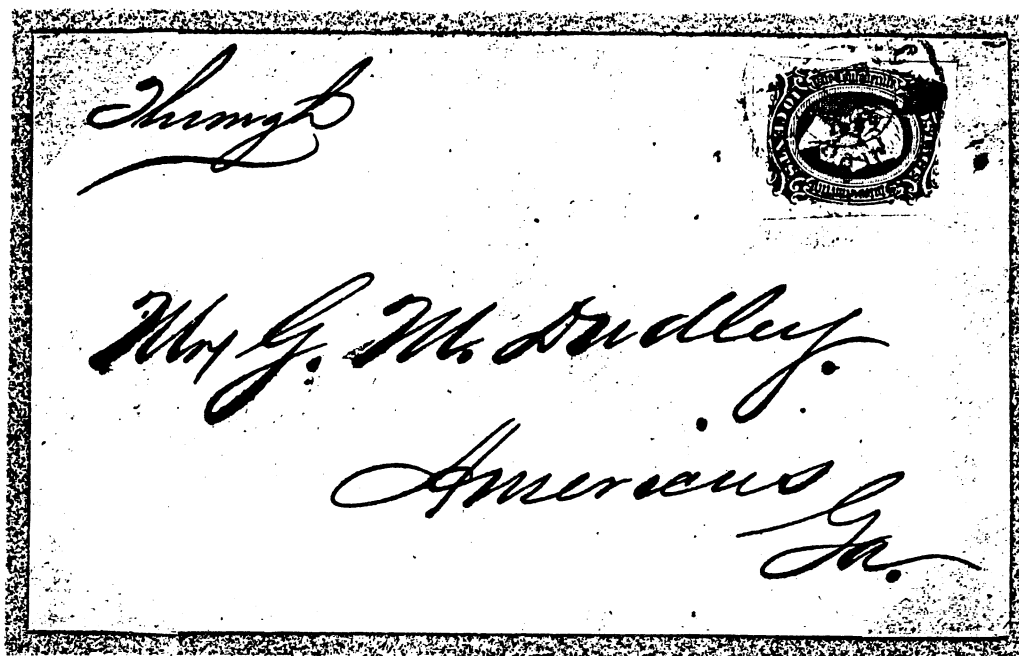 Through
Mrs G. M. Dudley.
Americus
Ga.